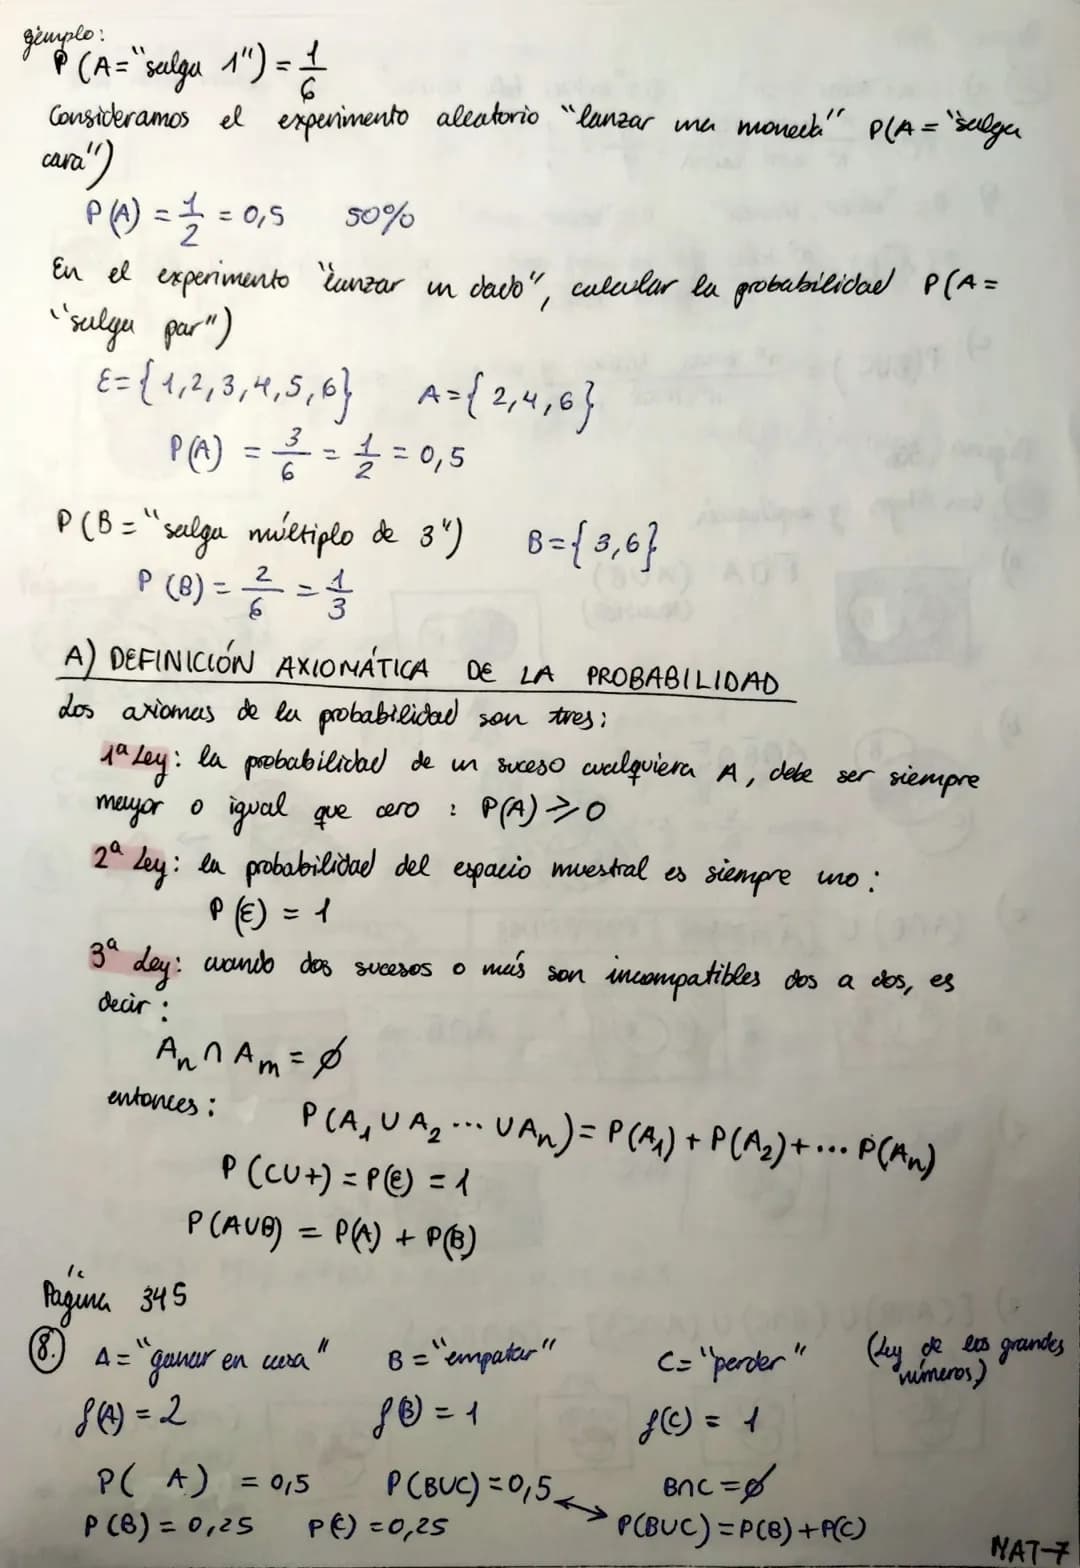 ejemplo:
P (A="salga 1") = 1/6
Consideramos el experimento aleatorio "lanzar una moneda" P(A = "salga
cara")
P(A) = 1/2 = 0,5 50%
En el experimento "lanzar un dado", calcular la probabilidad P(A =
"salga par")
E={1,2,3,4,5,6} A={2,4,6}
P(A) = 3/6 = 1/2 = 0,5
P (B="salga múltiplo de 3") B={3,6}
P (B) = 2/6 = 1/3
A) DEFINICIÓN AXIOMÁTICA DE LA PROBABILIDAD
Los axiomas de la probabilidad son tres:
1ª Ley: la probabilidad de un suceso cualquiera A, debe ser siempre
mayor o igual que cero : P(A) ⩾ 0
2ª Ley: la probabilidad del espacio muestral es siempre uno:
P(E) = 1
3ª Ley: cuando dos sucesos o más son incompatibles dos a dos, es
decir:
Aₙ ∩ Aₘ = ∅
entonces: P(A₁ ∪ A₂ ... ∪ Aₙ) = P(A₁) + P(A₂) + ... P(Aₙ)
P (C∪+) = P(E) = 1
P(A∪B) = P(A) + P(B)
Página 345
8. A = "ganar en casa" B = "empatar" C = "perder" (Ley de los grandes
números)
f(A) = 2 f(B) = 1 f(C) = 1
P( A) = 0,5 P(B∪C) = 0,5 B∩C = ∅
P(B) = 0,25 P(C) = 0,25 P(B∪C) = P(B) + P(C)
MAT-7